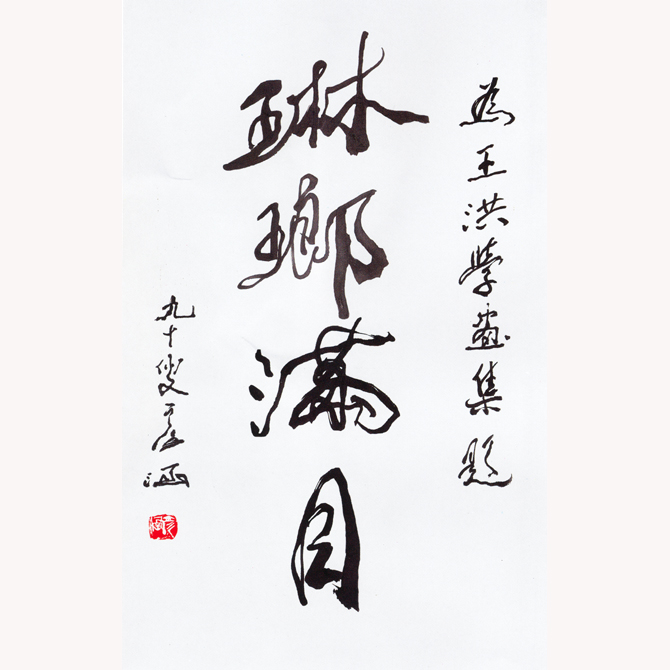 為王洪學畫集題
琳瑯滿目
九十叟彥涵
彥涵